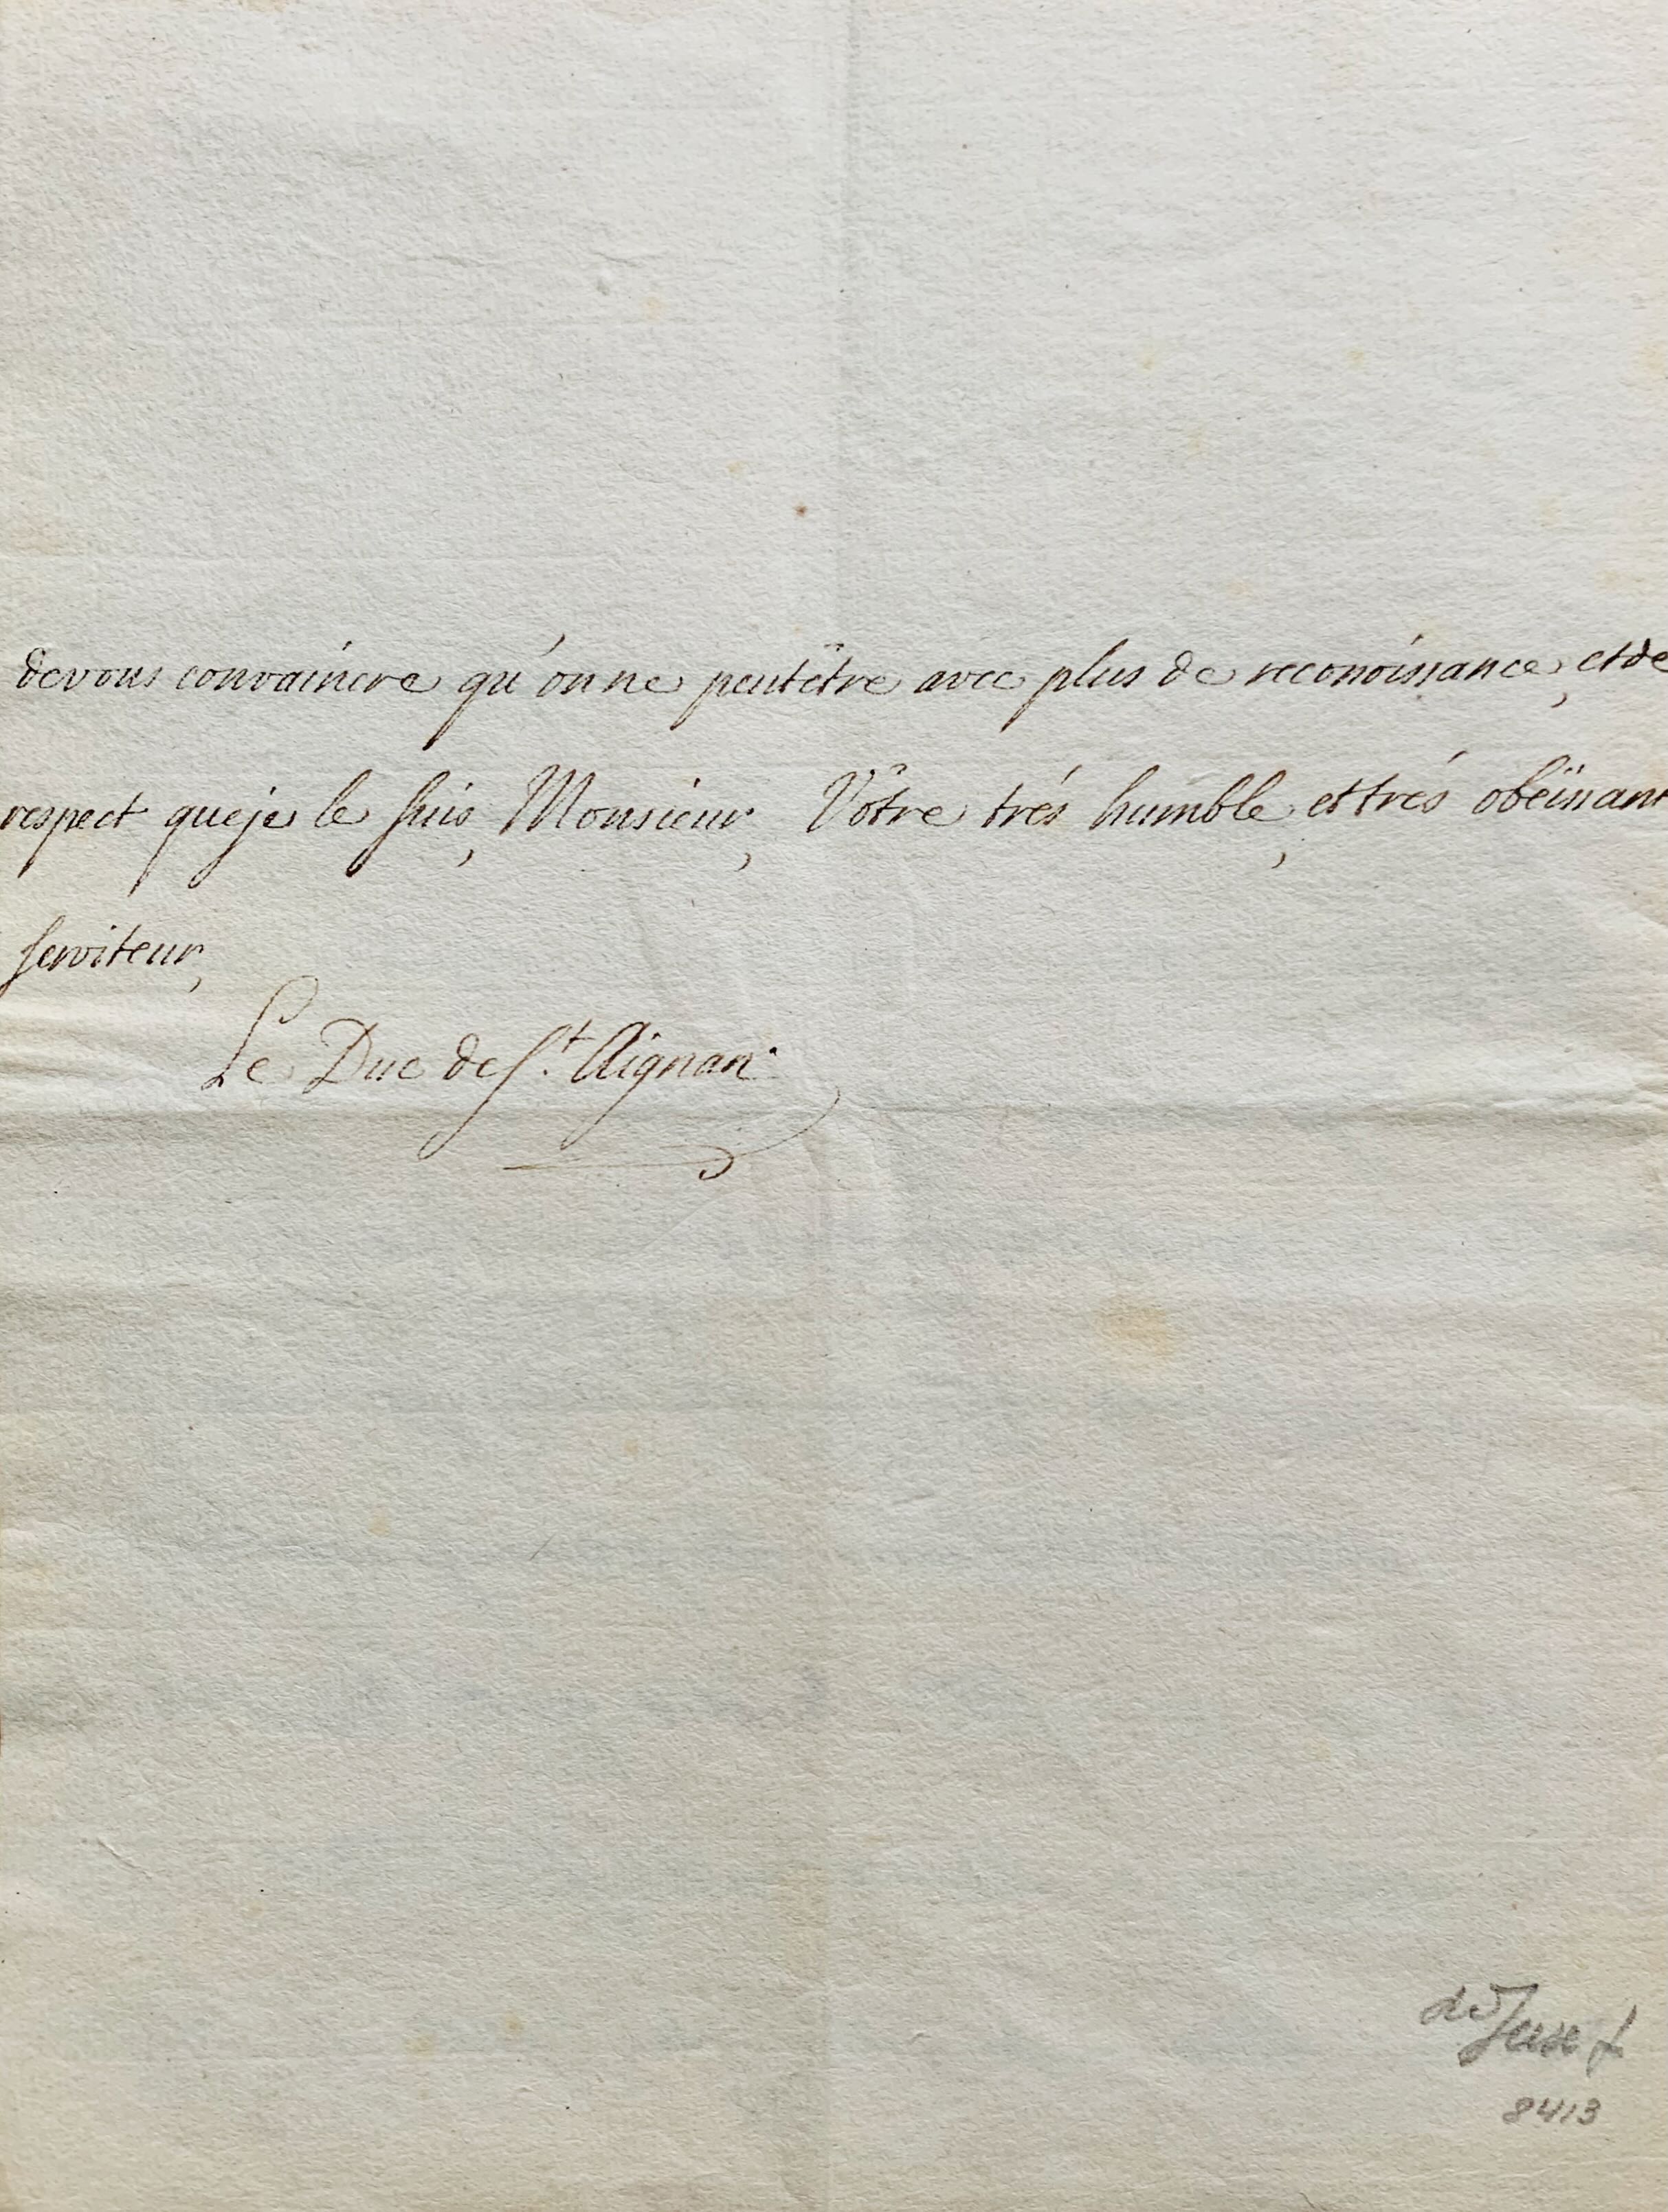 devous convaincre qu'on ne peutêtre avec plus de reconoissance, et de
respect queje le suis, Monsieur, Vôtre trés humble, et trés obëissant
serviteur,
Le Duc de St. Aignan.
8413